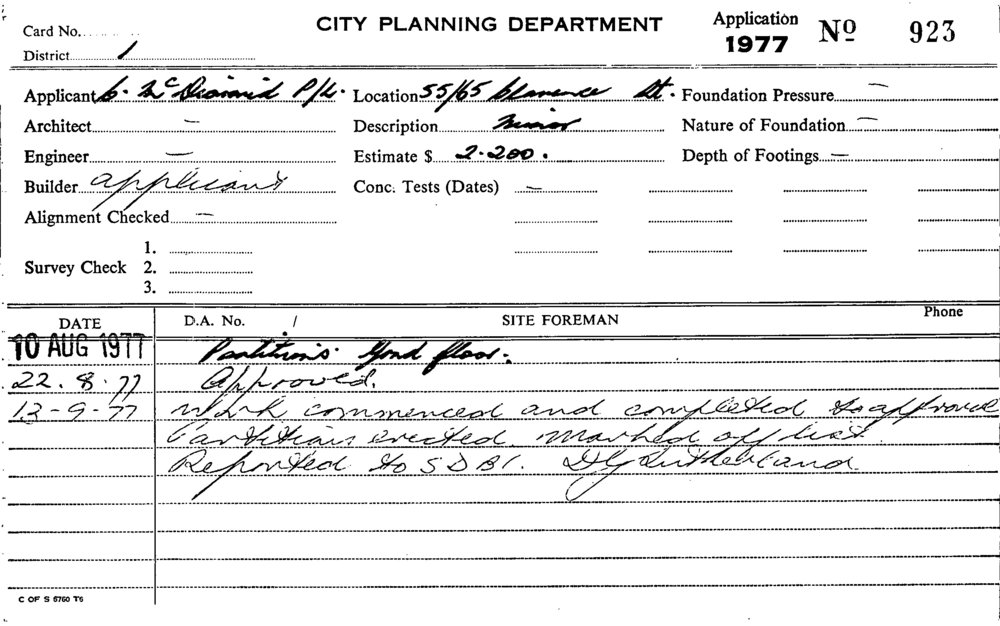 Card No.
CITY PLANNING DEPARTMENT
Application
1977 No 923
District 1
Applicant C. McDiarmid P/L. Location 55/65 Clarence St. Foundation Pressure —
Architect — Description Minor Nature of Foundation —
Engineer — Estimate $ 2.200. Depth of Footings —
Builder applicant Conc. Tests (Dates) —
Alignment Checked —
1.
Survey Check 2.
3.
DATE D.A. No. / SITE FOREMAN Phone
10 AUG 1977 Partitions floor.
22.8.77 Approved.
13-9-77 Work commenced and completed to approval
Partitions erected. Marked off list
Reported to S D B I. D G Sutherland.
C OF S 6760 T6